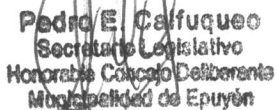 Pedro E. Calfuqueo
Secretario Legislativo
Honorable Concejo Deliberante
Municipalidad de Epuyén